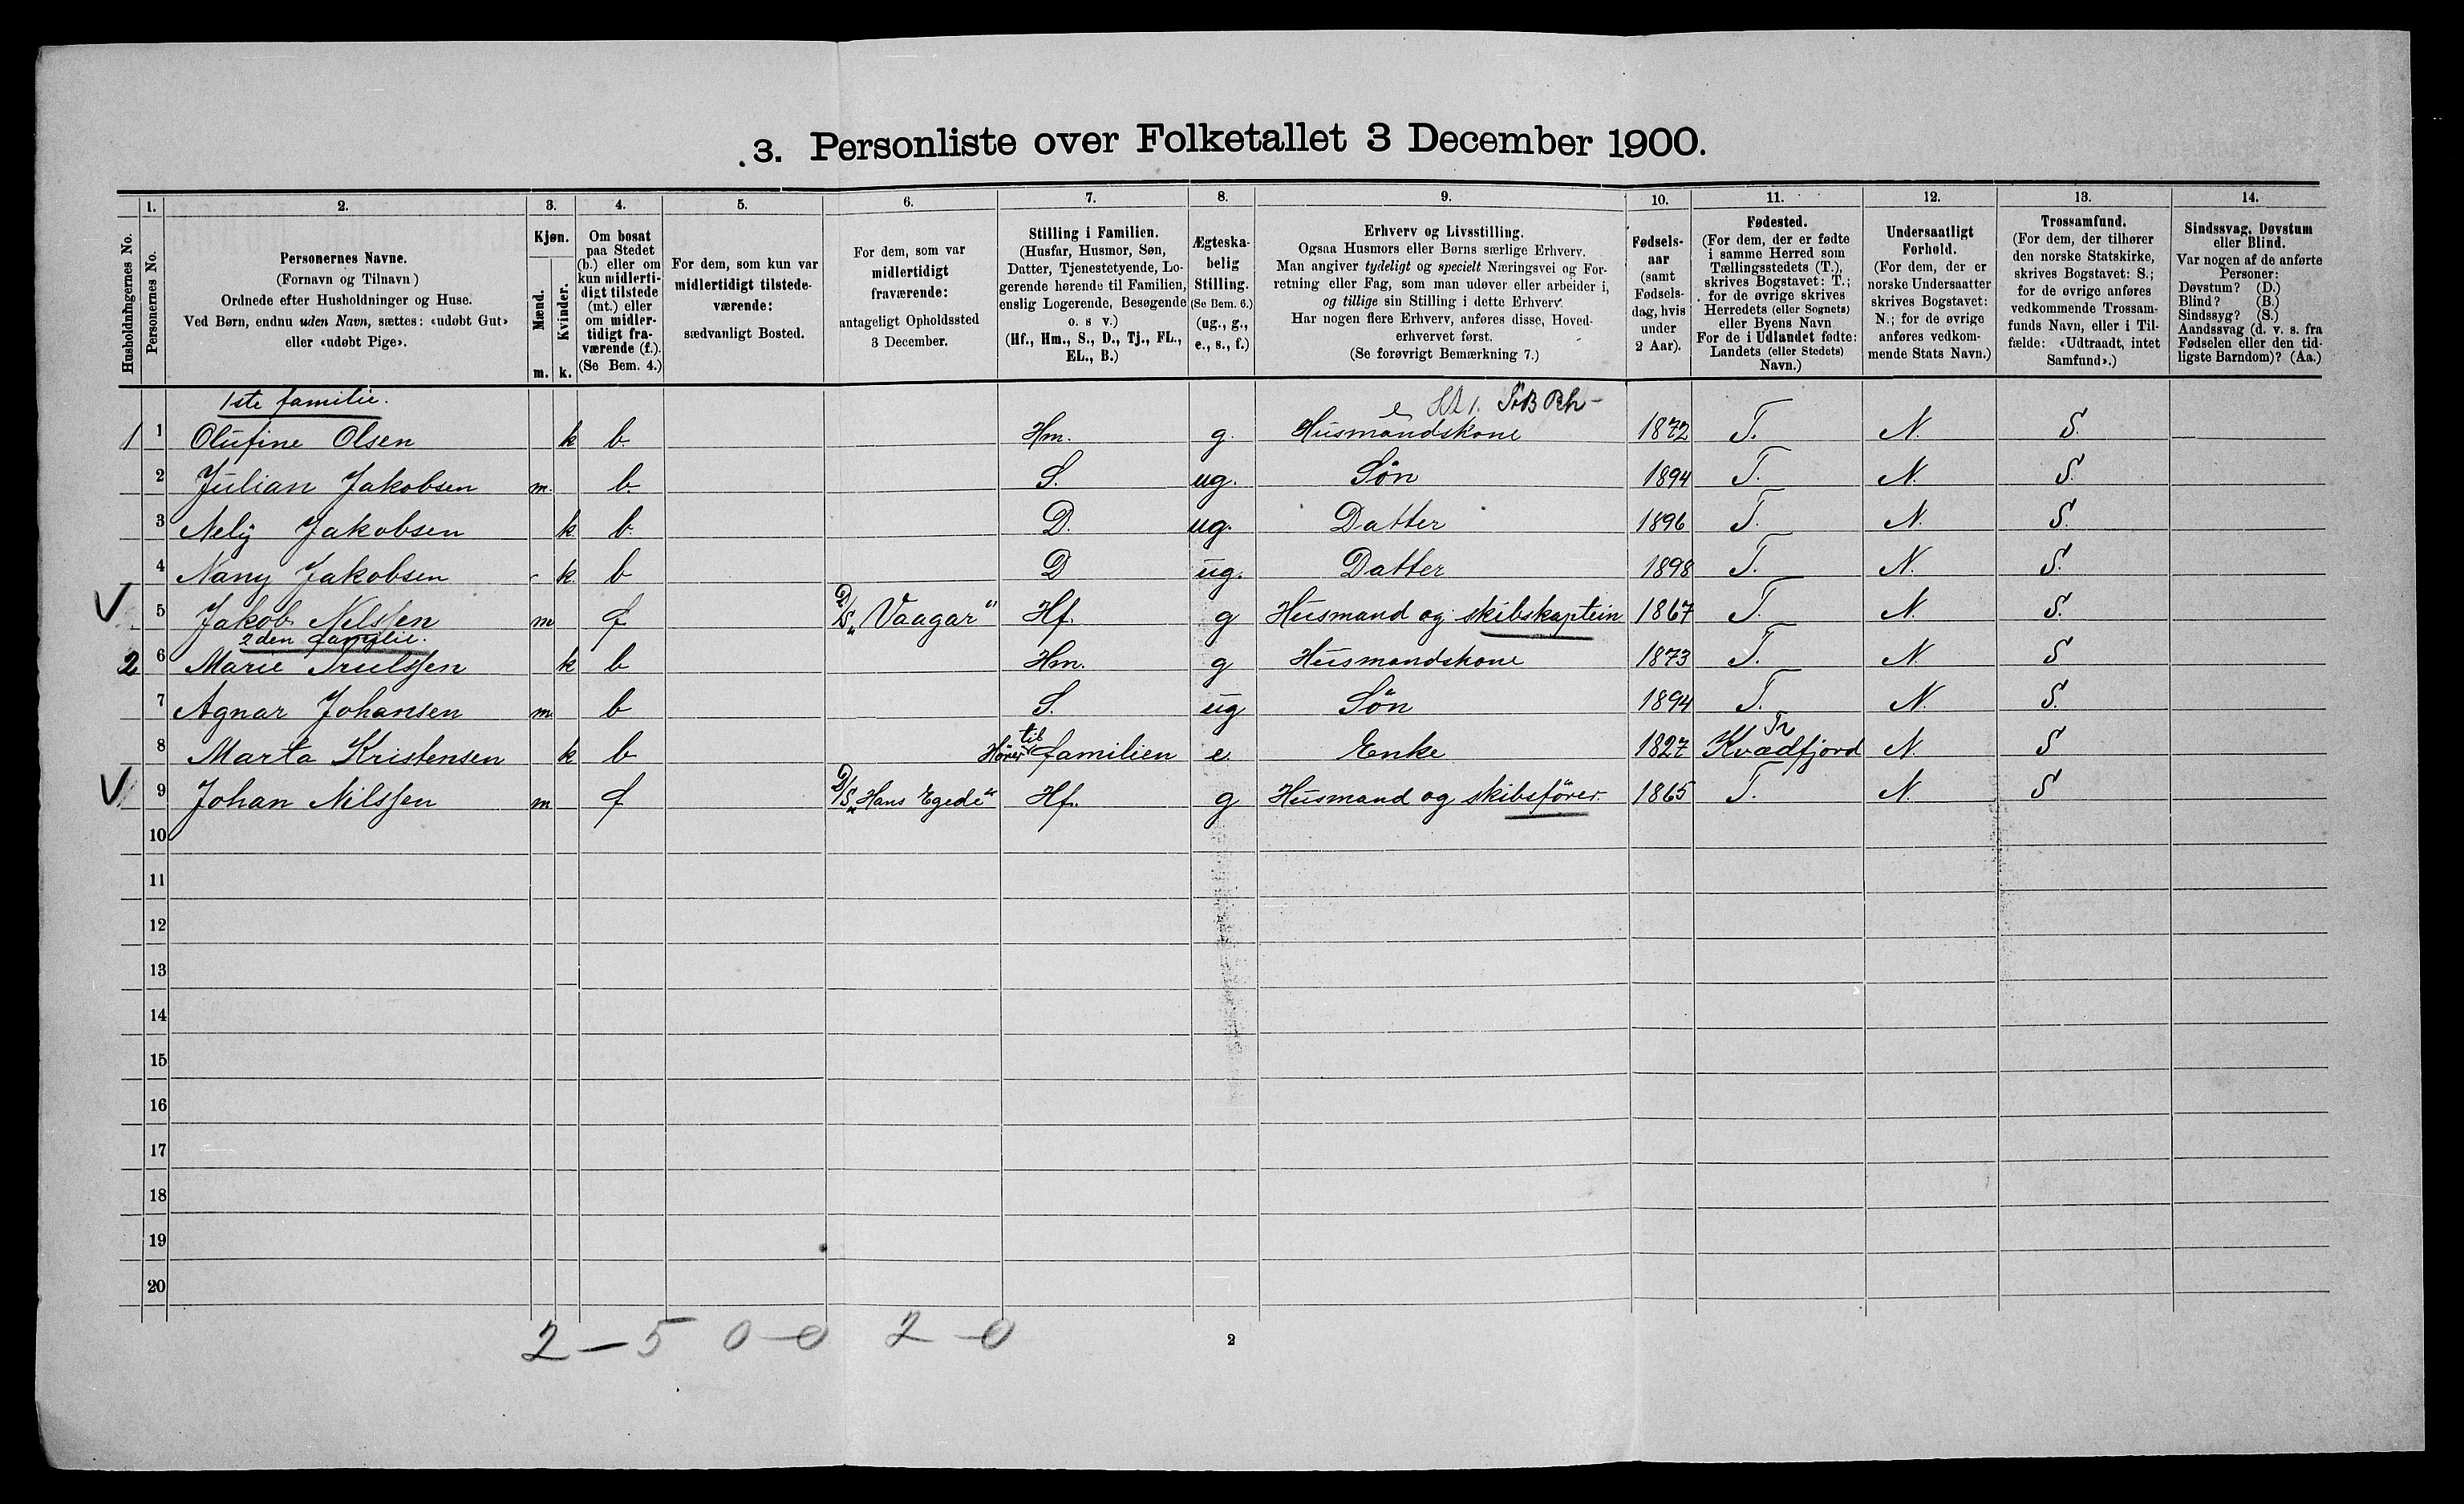 3. Personliste over Folketallet 3 December 1900.
Husholdningernes No.
1.
Personernes No.
2.
Personernes Navne.
(Fornavn og Tilnavn)
Ordnede efter Husholdninger og Huse.
Ved Børn, endnu uden Navn, sættes: «udøbt Gut»
eller «udøbt Pige».
3.
Kjøn.
Mænd.
Kvinder.
m. k.
4.
Om bosat
paa Stedet
(b.) eller om
kun midlerti-
digt tilstede
(mt.) eller
om midler-
tidigt fra-
værende (f.).
(Se Bem. 4.)
5.
For dem, som kun var
midlertidigt tilstede-
værende:
sædvanligt Bosted.
6.
For dem, som var
midlertidigt
fraværende:
antageligt Opholdssted
3 December.
7.
Stilling i Familien.
(Husfar, Husmor, Søn,
Datter, Tjenestetyende, Lo-
gerende hørende til Familien,
enslig Logerende, Besøgende
o. s v.)
(Hf., Hm., S., D., Tj., FL.,
EL., B.)
8.
Ægteska-
belig
Stilling.
(Se Bem. 6.)
(ug., g.,
e., s., f.)
9.
Erhverv og Livsstilling.
Ogsaa Husmors eller Børns særlige Erhverv.
Man angiver tydeligt og specielt Næringsvei og For-
retning eller Fag, som man udøver eller arbeider i,
og tillige sin Stilling i dette Erhverv.
Har nogen flere Erhverv, anføres disse, Hoved-
erhvervet først.
(Se forøvrigt Bemærkning 7.)
10.
Fødsels-
aar
(samt
Fødsels-
dag, hvis
under
2 Aar).
11.
Fødested.
(For dem, der er fødte
i samme Herred som
Tællingsstedets (T.),
skrives Bogstavet: T.;
for de øvrige skrives
Herredets (eller Sognets)
eller Byens Navn
For de i Udlandet fødte:
Landets (eller Stedets)
Navn.)
12.
Undersaatligt
Forhold.
(For dem, der er
norske Undersaatter
skrives Bogstavet:
N.; for de øvrige
anføres vedkom-
mende Stats Navn.)
13.
Trossamfund.
(For dem, der tilhører
den norske Statskirke,
skrives Bogstavet: S.;
for de øvrige anføres
vedkommende Trossam-
funds Navn, eller i Til-
fælde: «Udtraadt, intet
Samfund».)
14.
Sindssvag, Døvstum
eller Blind.
Var nogen af de anførte
Personer:
Døvstum? (D.)
Blind? (B.)
Sindssyg? (S.)
Aandssvag (d. v. s. fra
Fødselen eller den tid-
ligste Barndom)? (Aa.)
1ste familie.
1 1 Olufine Olsen k b. Hm. g. Husmandskone 1872 T. N. S.
2 Julian Jakobsen m. b. S. ug. Søn 1894 T. N. S.
3 Nely Jakobsen k. b. D. ug. Datter 1896 T. N. S.
4 Nany Jakobsen k. b D ug. Datter 1898 T. N. S.
V 5 Jakob Nilssen m f D/S „Vaagar“ Hf. g Husmand og skibskaptein 1867 T. N. S.
2den familie.
2 6 Marie Trulssen k b Hm. g Husmandskone 1873 T. N S
7 Agnar Johansen m. b S. ug Søn 1894 T. N. S.
8 Marta Kristensen k b Hører til familien e. Enke 1827 Kvædfjord N. S
V 9 Johan Nilssen m f D/S „Hans Egede“ Hf. g Husmand og skibsfører. 1865 T. N. S
10
11
12
13
14
15
16
17
18
19
20
2 – 5 0 – 0 2 – 0
2